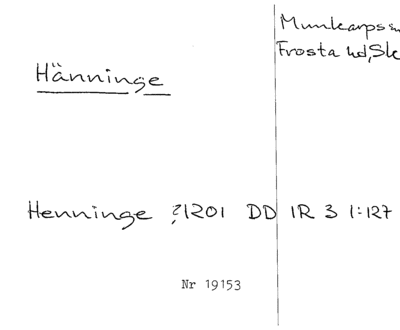 Munkarps sn
Frosta hd, Sk
Hänninge
Henninge ?1201 DD 1R 3 1:127
Nr 19153